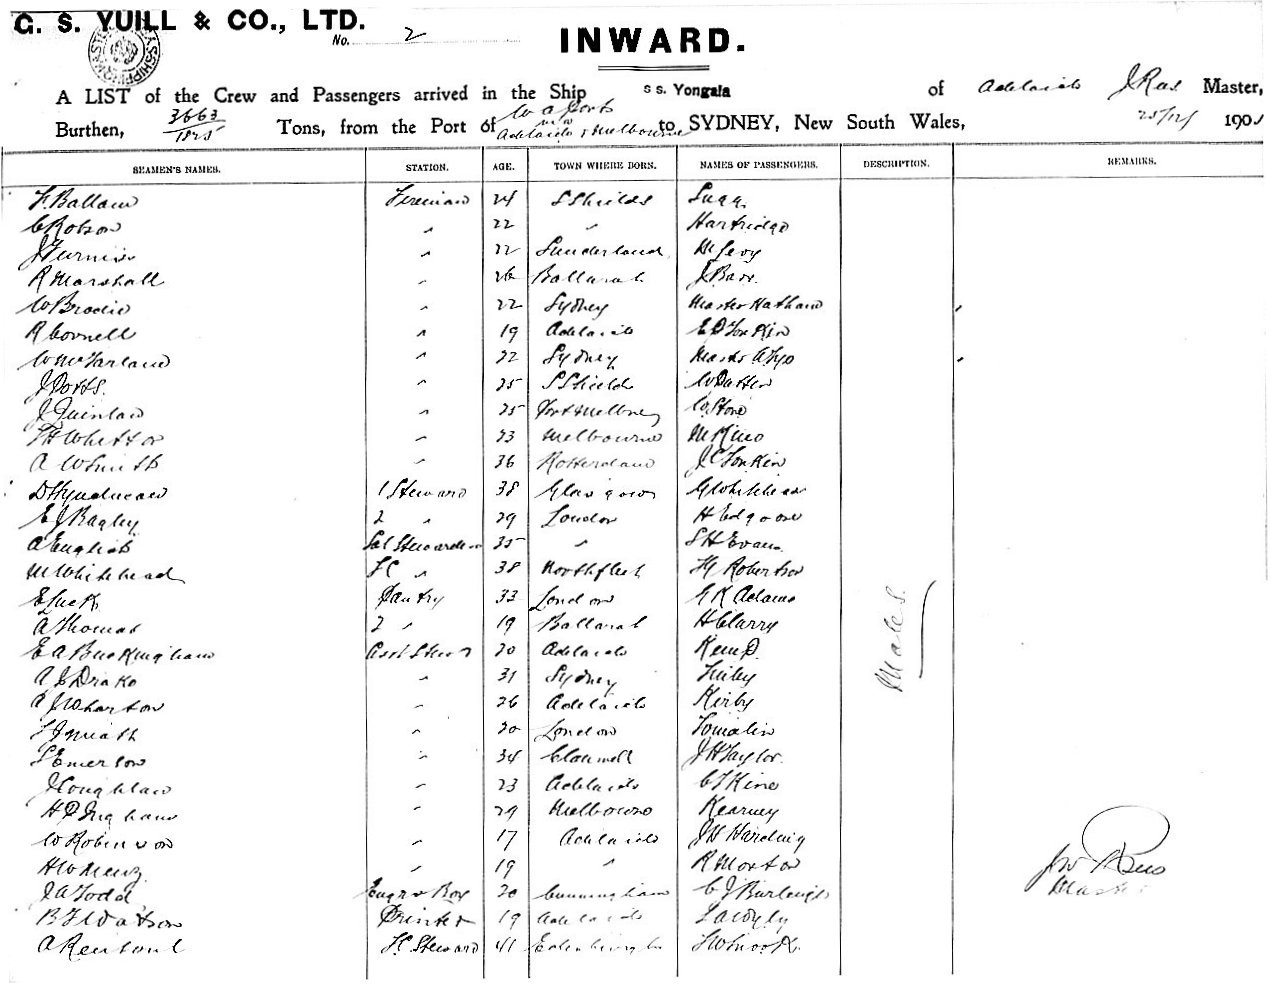 G. S. YUILL & CO., LTD.
No. 2
INWARD.
A LIST of the Crew and Passengers arrived in the Ship ss. Yongala of Adelaide J Rees Master,
Burthen, 3663 / 1825 Tons, from the Port of W a Ports via Adelaide & Melbourne to SYDNEY, New South Wales, 25/12/ 190
SEAMEN'S NAMES. STATION. AGE. TOWN WHERE BORN. NAMES OF PASSENGERS. DESCRIPTION. REMARKS.
F. Ballam Fireman 24 S Shields Sugg
C Robson " 22 " Hartridge
J Furniss " 22 Sunderland Levy
R Marshall " 26 Ballarat J Barr
W Brodie " 22 Sydney Master Nathan
R Connell " 19 Adelaide E P Tonkin
W McFarland " 22 Sydney
J Potts. " 25 S Shields W Patten
J Quinlan " 25 Port Melbney W Stone
Whittor " 23 Melbourne M King
A W Smith " 36 Rotterdam J C Tonkin
1 Steward 38 Glasgow G Whitehead
E J Bagley 2 " 29 London H Edgoose
A English Sal Stewardess 35 " S H Evans
M Whitehead FC " 38 Northfleet Robertson
E Luck Pantry 33 London G K Adams
A Thomas 2 " 19 Ballarat H Clarry
E A Buckingham Asst Stewd 20 Adelaide Kemp
A J Drake " 31 Sydney
A J Wharton " 26 Adelaide Kirby
" 20 London Tomalin
S Emerson " 34 Clonmell J H Taylor
J Coughlan " 23 Adelaide C T King
H P Ingham " 29 Melbourne Kearney
W Robinson " 17 Adelaide J H Harding
H W Menz " 19 " R Morton
J A Todd Engrs Boy 20 Cunningham C J Burleigh
B F Watson Printer 19 Adelaide
A Rentoul FC Steward 41 Edinburgh F W Snook
Males.
Master